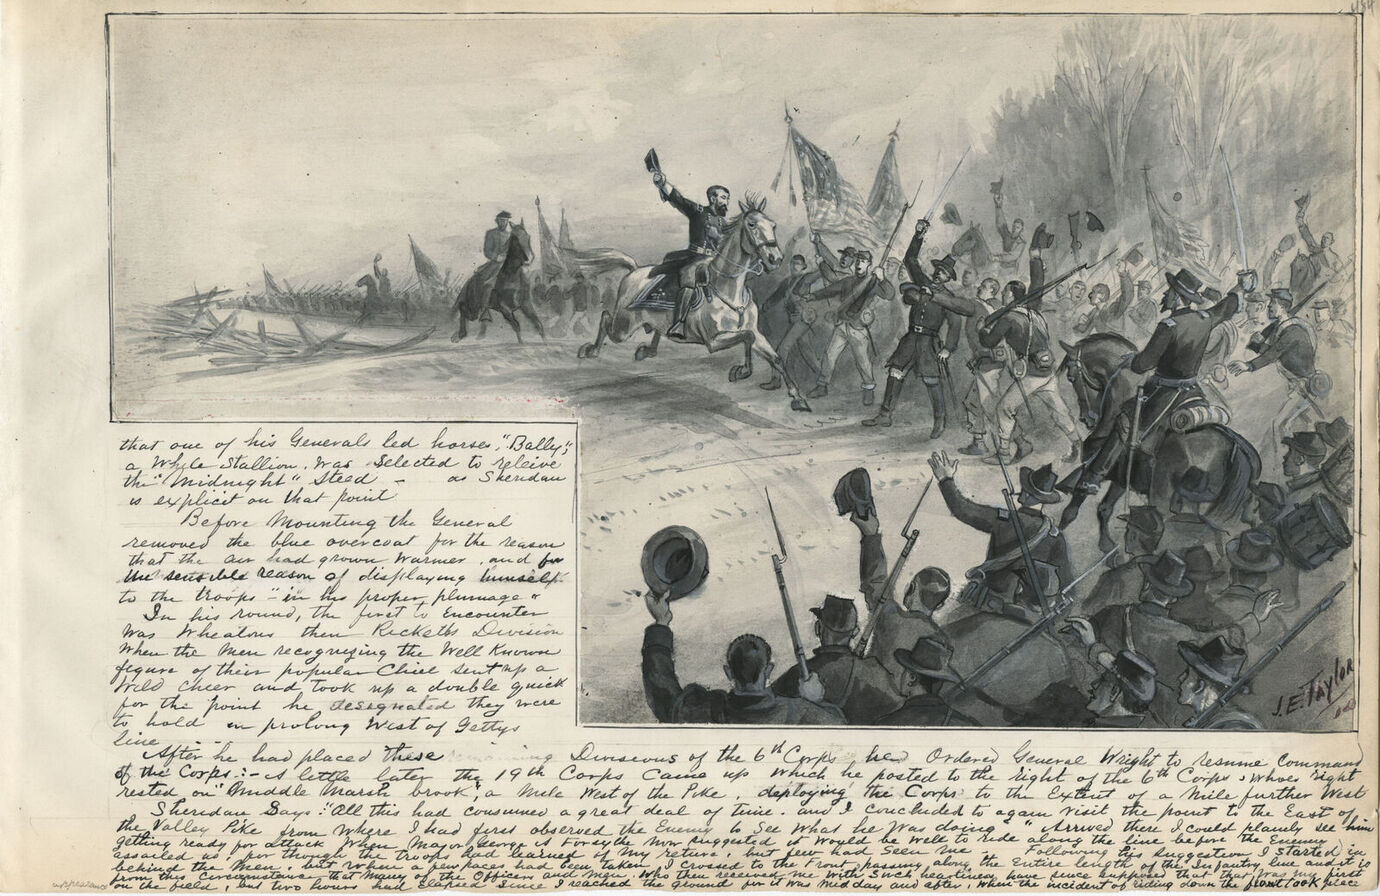 484
that one of his Generals led horses, "Bally",
a White Stallion. was selected to releive
the "Midnight" Steed – as Sheridan
is explicit on that point
Before mounting the General
removed the blue overcoat for the reason
that the air had grown warmer. and for
the sensible reason of displaying himself
to the troops "in his proper plumage"
In his round, the first to encounter
was Wheatons then Ricketts Division
when the men recognizing the well known
figure of their popular Chief sent up a
wild cheer and took up a double quick
for the point he designated they were
to hold in prolong West of Gettys
line
After he had placed these Divisions of the 6th Corps he Ordered General Wright to resume command
of the Corps:- A little later the 19th Corps came up which he posted to the right of the 6th Corps, whoes right
rested on "Middle Marsh brook", a mile West of the Pike, deploying the Corps to the Extent of a mile further West
Sheridan Says: "All this had consumed a great deal of time. and I concluded to again visit the point to the East of
the Valley Pike from where I had first observed the Enemy to See what he was doing" "Arrived there I could plainly see him
getting ready for attack When Major George A Forsythe now suggested it would be well to ride along the line before the Enemy
assailed us, for though the troops had learned of my return, but few had seen me. Following his suggestion I started in
behind the men, but when a few paces had been taken I crossed to the front, passing along the Entire length of the Infantry line. and it is
from this Circumstance that many of the Officers and men, who then received me with such heartiness have since supposed that that was my first
appearance
on the field, but two hours had elapsed since I reached the ground for it was midday and after, when the incident of riding down the front took place
J. E. Taylor